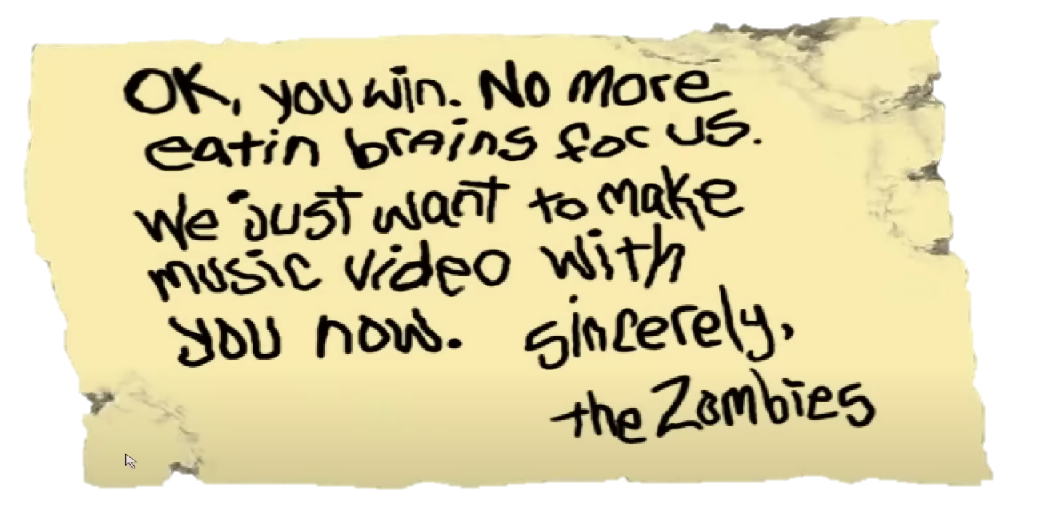 OK, you win. No more
eatin brains for us.
We just want to make
music video with
you now. sincerely,
the Zombies